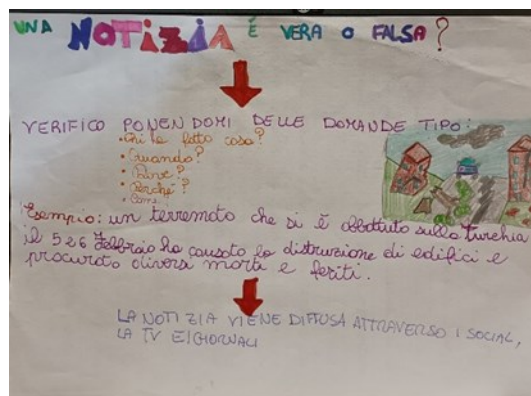 UNA NOTIZIA È VERA O FALSA?
VERIFICO PONENDOMI DELLE DOMANDE TIPO:
• Chi ha fatto cosa?
• Quando?
• Dove?
• Perché?
• Come
Esempio: un terremoto che si è abbattuto sulla Turchia
il 5 e 6 febbraio ha causato la distruzione di edifici e
procurato diversi morti e feriti.
LA NOTIZIA VIENE DIFFUSA ATTRAVERSO I SOCIAL,
LA TV E I GIORNALI